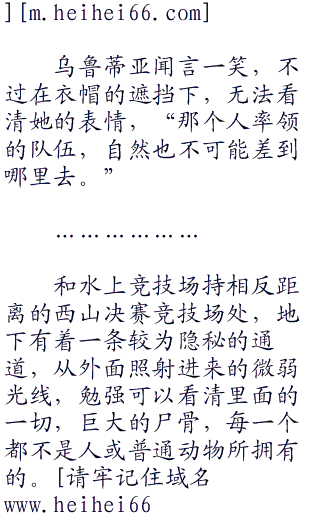 ][m.heihei66.com]
乌鲁蒂亚闻言一笑，不
过在衣帽的遮挡下，无法看
清她的表情，“那个人率领
的队伍，自然也不可能差到
哪里去。”
………………
和水上竞技场持相反距
离的西山决赛竞技场处，地
下有着一条较为隐秘的通
道，从外面照射进来的微弱
光线，勉强可以看清里面的
一切，巨大的尸骨，每一个
都不是人或普通动物所拥有
的。[请牢记住域名
www.heihei66